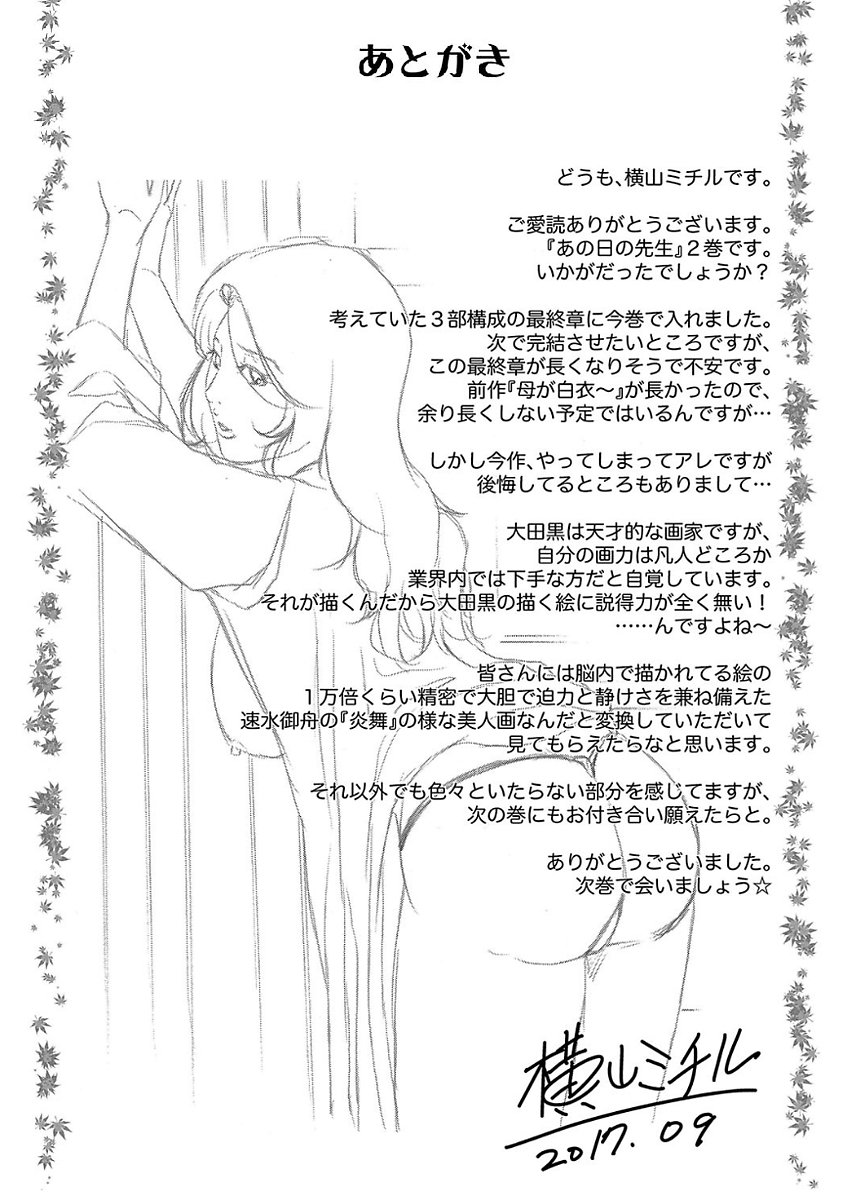 あとがき
どうも、横山ミチルです。
ご愛読ありがとうございます。
『あの日の先生』2巻です。
いかがだったでしょうか？
考えていた3部構成の最終章に今巻で入れました。
次で完結させたいところですが、
この最終章が長くなりそうで不安です。
前作『母が白衣〜』が長かったので、
余り長くしない予定ではいるんですが…
しかし今作、やってしまってアレですが
後悔してるところもありまして…
大田黒は天才的な画家ですが、
自分の画力は凡人どころか
業界内では下手な方だと自覚しています。
それが描くんだから大田黒の描く絵に説得力が全く無い！
……んですよね〜
皆さんには脳内で描かれてる絵の
1万倍くらい精密で大胆で迫力と静けさを兼ね備えた
速水御舟の『炎舞』の様な美人画なんだと変換していただいて
見てもらえたらなと思います。
それ以外でも色々といたらない部分を感じてますが、
次の巻にもお付き合い願えたらと。
ありがとうございました。
次巻で会いましょう☆
横山ミチル
2017.09